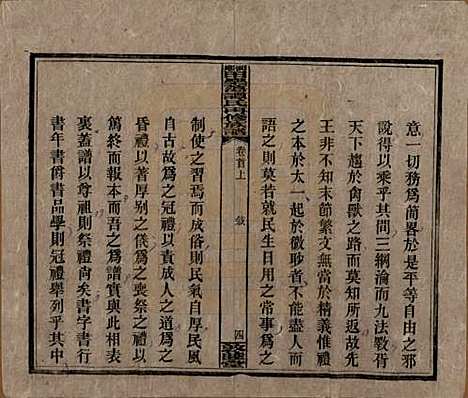 意一切務爲簡畧於是平等自由之邪
說得以乘乎其間三綱淪而九法斁胥
天下趨於禽獸之路而莫知所返故先
王非不知末節繁文無當於精義惟禮
之本於太一起於微眇者不能盡人而
語之則莫若就民生日用之常事爲之
氏再修族譜
卷首上
敘
四
敦睦堂
制使之習焉而成俗則民氣自厚民風
自古故爲之冠禮以責成人之道爲之
昏禮以著厚别之儀爲之喪祭之禮以
篤終而報本而吾之爲譜實與此相表
裏蓋譜以尊祖則祭禮尙矣書字書行
年書書爵書品學則冠禮舉列乎其中